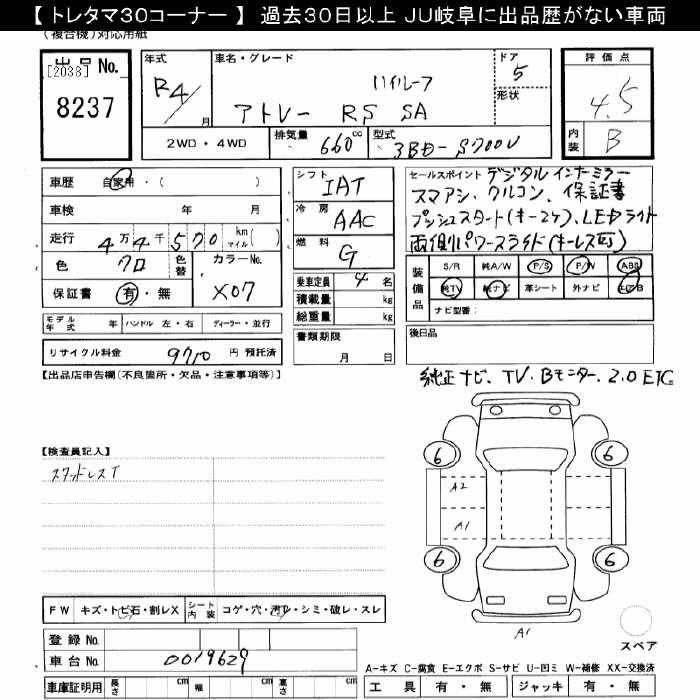 【 トレタマ30コーナー 】 過去30日以上 JU岐阜に出品歴がない車両
(複合機)対応用紙
出品 No.
[2038]
8237
年式
R4
月
車名・グレード
ハイルーフ
アトレー RS SA
ドア
5
形状
評価点
4.5
内装
B
2WD・4WD
排気量
660 cc
型式
3BD-S700V
車歴 自家用・( )
車検 年 月
走行 4万4千570 km マイル( )
色 クロ
色替
カラーNo.
X07
保証書 有・無
シフト
IAT
冷房
AAC
燃料
G
乗車定員 4 名
積載量 kg
総重量 kg
書類期限
月 日
セールスポイント デジタルインナーミラー
スマアシ、クルコン、保証書
プッシュスタート(キー2ヶ)、LEDライト
両側パワースライド(キーレス可)
装備品
S/R 純A/W P/S P/W ABS
純TV 純ナビ 革シート 外ナビ エアB
ナビ型番:
後日品
純正ナビ、TV、Bモニター、2.0ETC
モデル年式 年 ハンドル 左・右 ディーラー・並行
リサイクル料金 9710 円 預託済
【出品店申告欄(不良箇所・欠品・注意事項等)】
【検査員記入】
スタッドレスT
6
6
A2
A1
6
6
A1
スペア
FW キズ・トビ石・割レX シート内装 コゲ・穴・汚レ・シミ・破レ・スレ
登録 No.
車台 No. 0019629
車庫証明用 長さ cm 幅 cm 高さ cm
A-キズ C-腐食 E-エクボ S-サビ U-凹ミ W-補修 XX-交換済
工具 有・無 ジャッキ 有・無